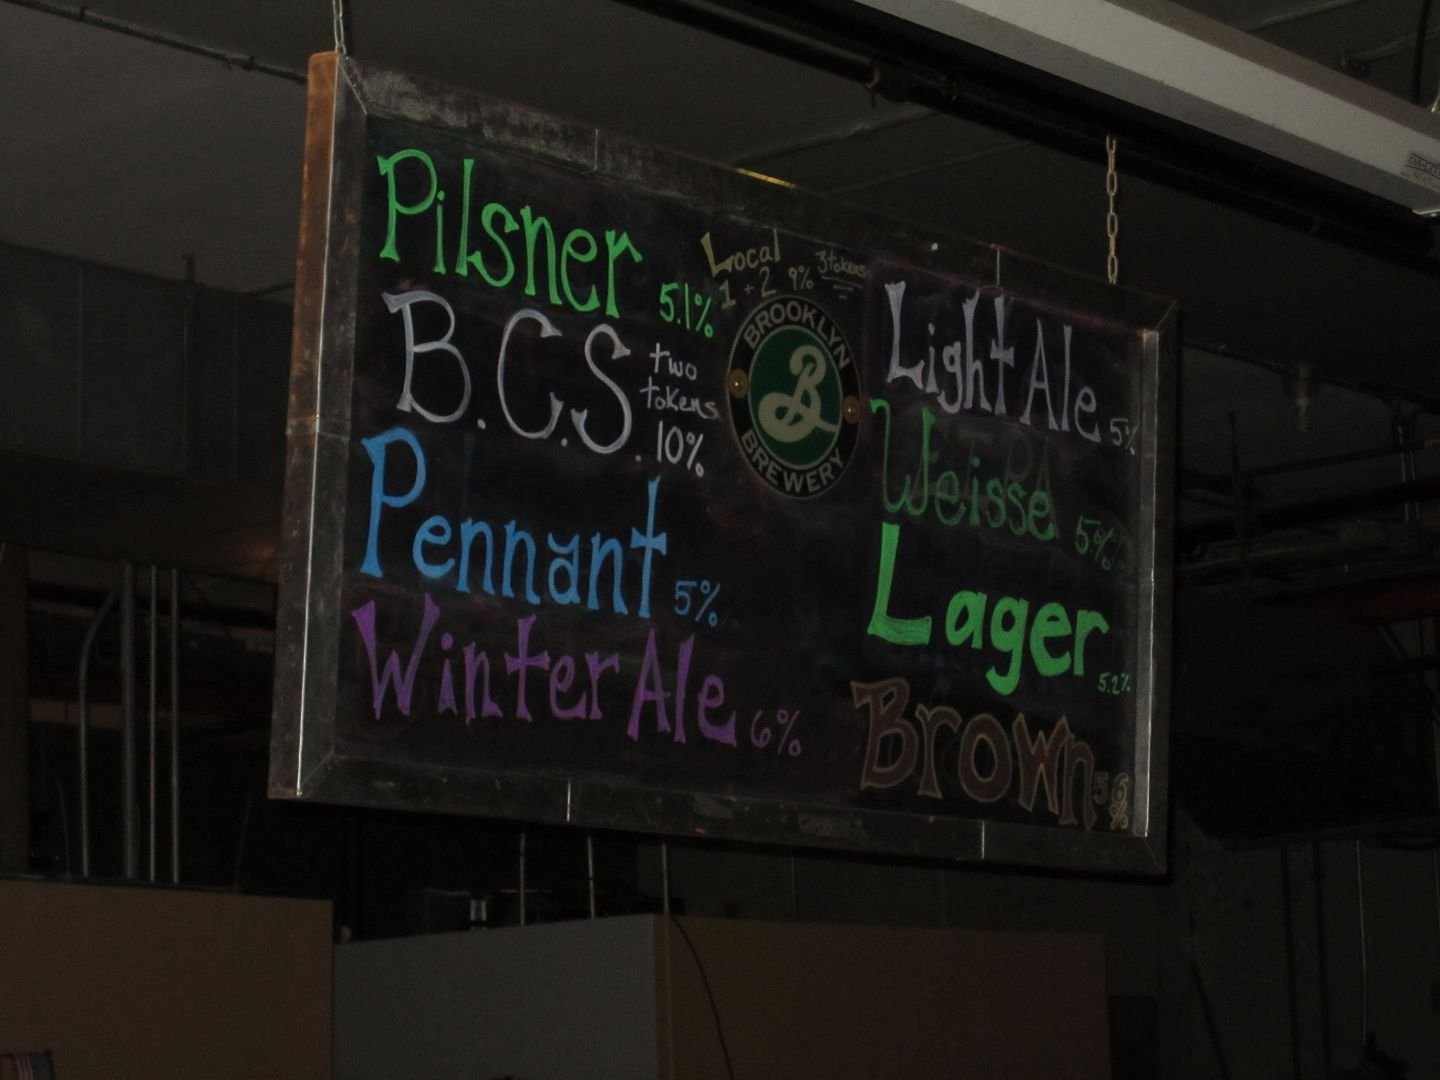 Pilsner 5.1%
B.C.S. two tokens 10%
Pennant 5%
Winter Ale 6%
Local 1 + 2 9% 3 tokens
BROOKLYN
B
BREWERY
Light Ale 5%
Weisse
Lager 5.2%
Brown 5.6%